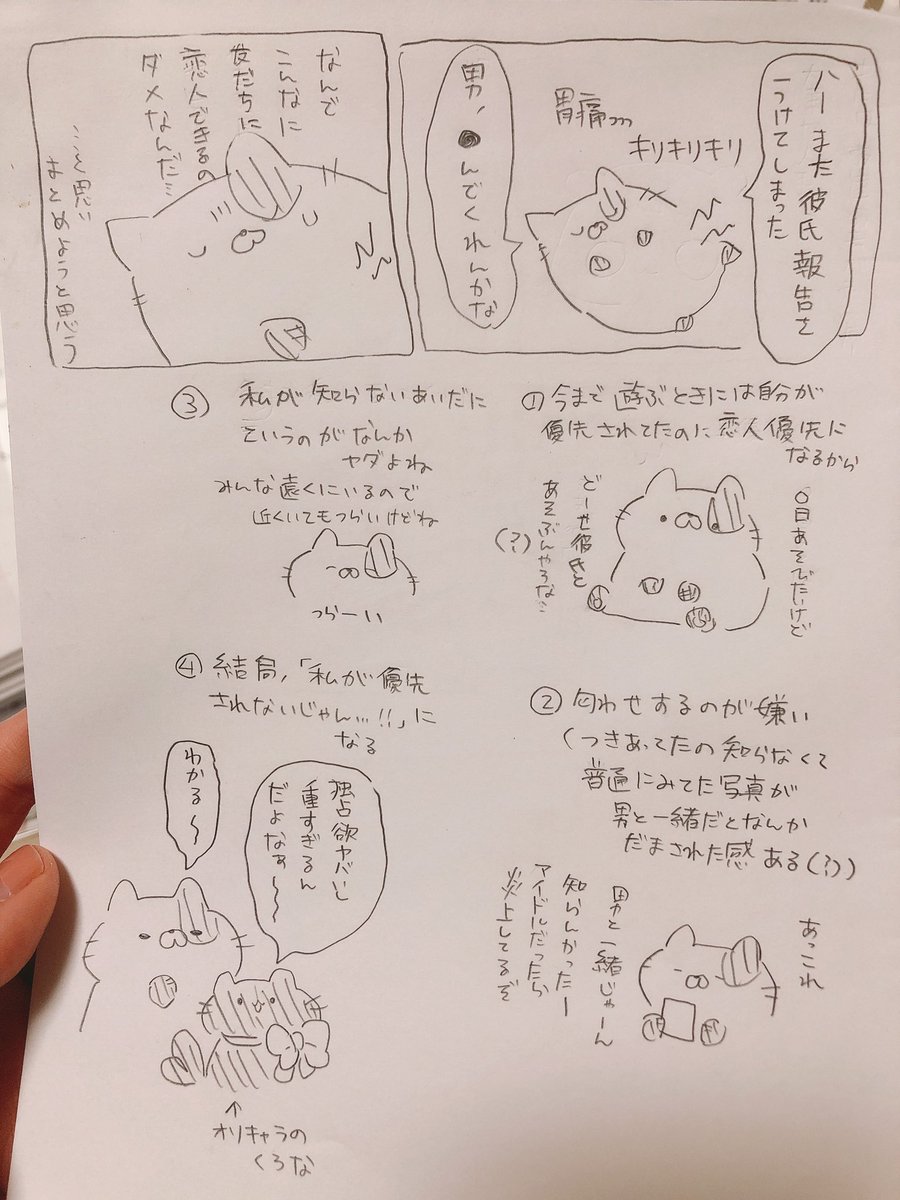 ハーまた彼氏報告を
つけてしまった
胃痛…
キリキリキリ
男、●んでくれんかな
なんで
こんなに
友だちに
恋人できるの
ダメなんだ…
こと思い
まとめようと思う
①今まで遊ぶときには自分が
優先されてたのに恋人優先に
なるから
〇日あそびたいけど
どーせ彼氏と
あそぶんやろな…
(?)
②匂わせするのが嫌い
(つきあってたの知らなくて
普通にみてた写真が
男と一緒だとなんか
だまされた感ある(?))
あっこれ
男と一緒じゃーん
知らんかったー
アイドルだったら
炎上してるぞ
③私が知らないあいだに
というのがなんか
ヤダよね
みんな遠くにいるので
近くいてもつらいけどね
つらーい
④結局、「私が優先
されないじゃん…!!」に
なる
独占欲ヤバいし
重すぎるん
だよなぁ〜〜
わかる〜
↑
オリキャラの
くろな